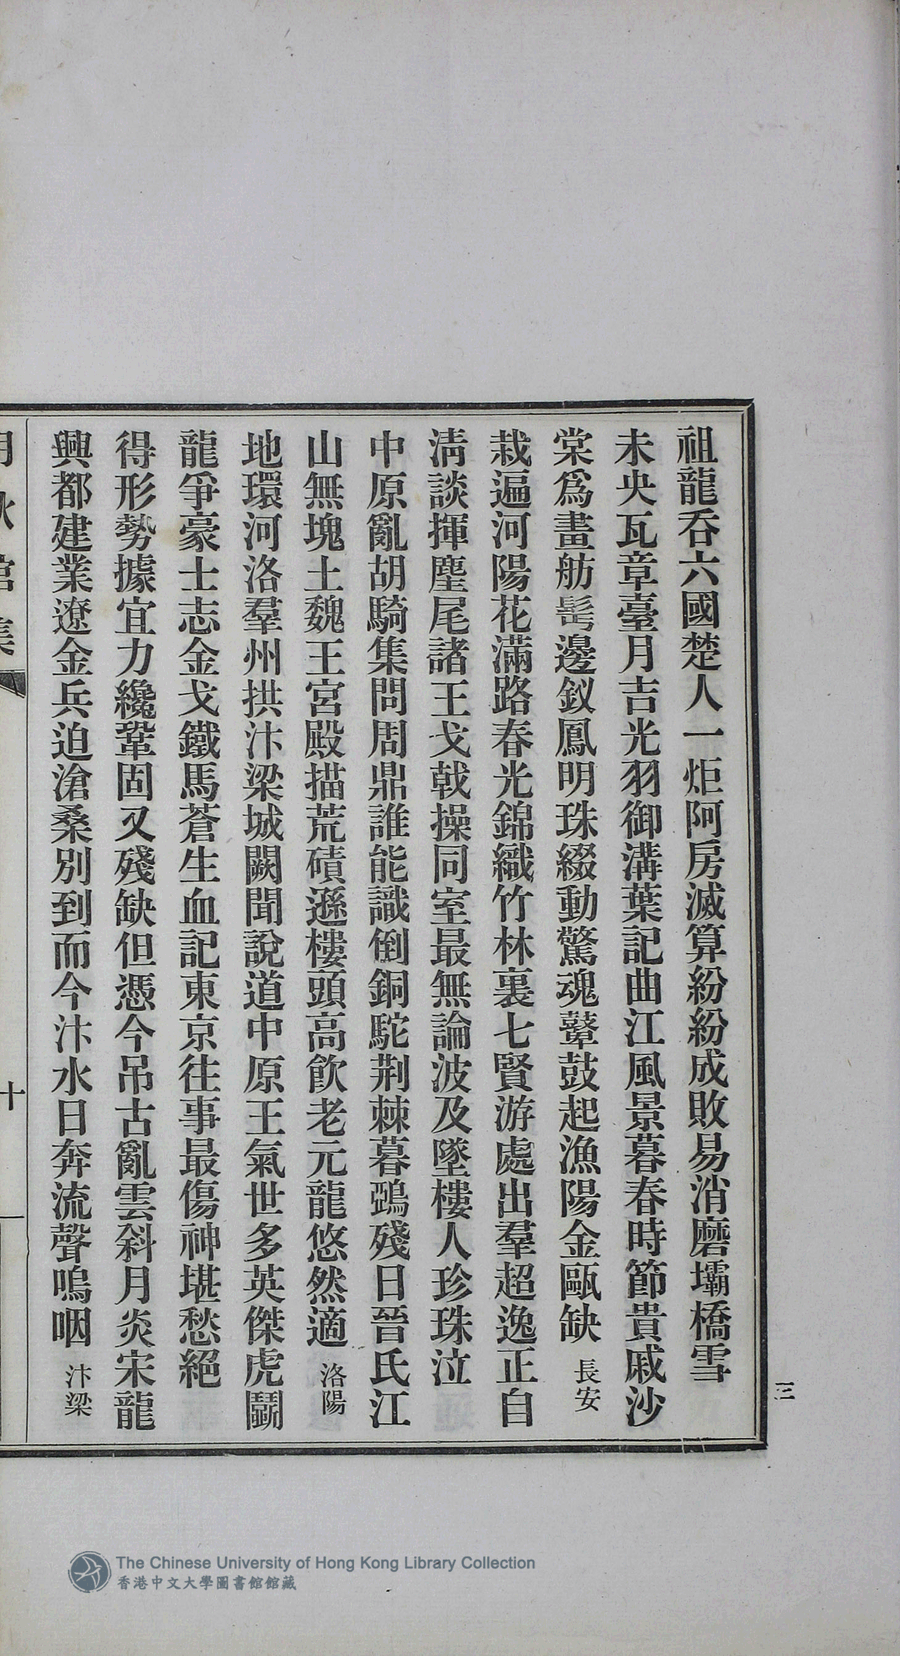 祖龍呑六國楚人一炬阿房滅算紛紛成敗易消磨壩橋雪
未央瓦章臺月吉光羽御溝葉記曲江風景暮春時節貴戚沙
棠爲畫舫髩邊釵鳳明珠綴動驚魂鼙鼓起漁陽金甌缺 長安
栽遍河陽花滿路春光錦織竹林裏七賢游處出羣超逸正自
淸談揮麈尾諸王戈戟操同室最無論波及墜樓人珍珠泣
中原亂胡騎集問周鼎誰能識倒銅駝荆棘暮鵶殘日晉氏江
山無塊土魏王宮殿描荒磧遜樓頭高飮老元龍悠然適 洛陽
地環河洛羣州拱汴梁城闕聞說道中原王氣世多英傑虎鬭
龍爭豪士志金戈鐵馬蒼生血記東京往事最傷神堪愁絕
得形勢據宜力纔鞏固又殘缺但憑今吊古亂雲斜月炎宋龍
興都建業遼金兵迫滄桑別到而今汴水日奔流聲嗚咽 汴梁
十
三
The Chinese University of Hong Kong Library Collection
香港中文大學圖書館館藏